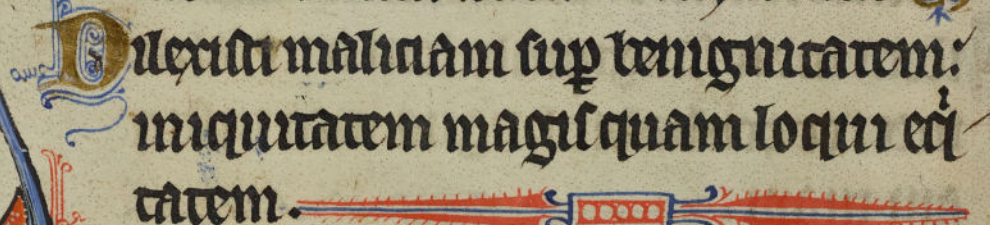 Dilexisti maliciam suꝑ benignitatem:
iniquitatem magis quam loqui eqͥ
tatem.